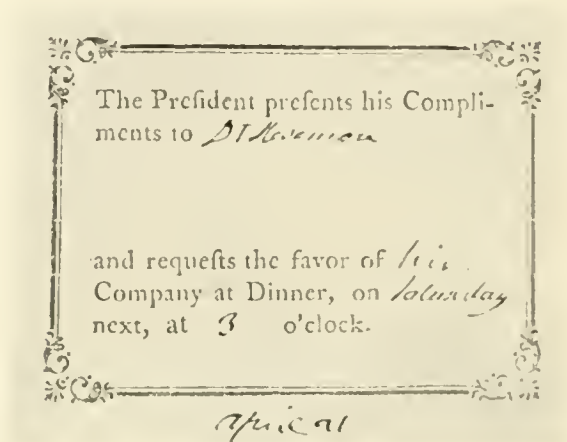 The Preſident preſents his Compli-
ments to
and requeſts the favor of his
Company at Dinner, on Saturday
next, at 3 o'clock.